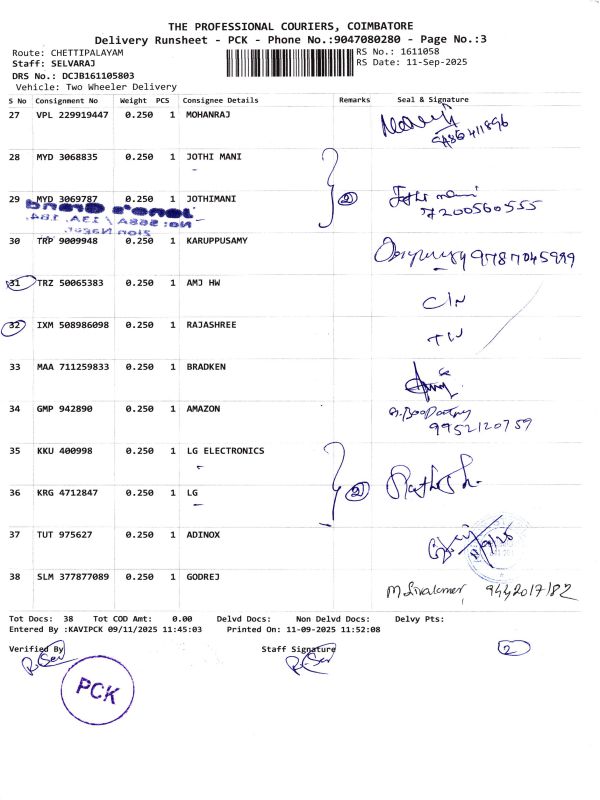 THE PROFESSIONAL COURIERS, COIMBATORE
Delivery Runsheet - PCK - Phone No.:9047080280 - Page No.:3
Route: CHETTIPALAYAM RS No.: 1611058
Staff: SELVARAJ RS Date: 11-Sep-2025
DRS No.: DCJB161105803
Vehicle: Two Wheeler Delivery
S No Consignment No Weight PCS Consignee Details Remarks Seal & Signature
27 VPL 229919447 0.250 1 MOHANRAJ
28 MYD 3068835 0.250 1 JOTHI MANI
29 MYD 3069787 0.250 1 JOTHIMANI 2 Jothi mani
7200560555
30 TRP 9009948 0.250 1 KARUPPUSAMY 9787045999
31 TRZ 50065383 0.250 1 AMJ HW C/N
32 IXM 508986098 0.250 1 RAJASHREE
33 MAA 711259833 0.250 1 BRADKEN
34 GMP 942890 0.250 1 AMAZON
9952120759
35 KKU 400998 0.250 1 LG ELECTRONICS
36 KRG 4712847 0.250 1 LG 2
37 TUT 975627 0.250 1 ADINOX
38 SLM 377877089 0.250 1 GODREJ
Tot Docs: 38 Tot COD Amt: 0.00 Delvd Docs: Non Delvd Docs: Delvy Pts:
Entered By :KAVIPCK 09/11/2025 11:45:03 Printed On: 11-09-2025 11:52:08
Verified By Staff Signature 2
PCK